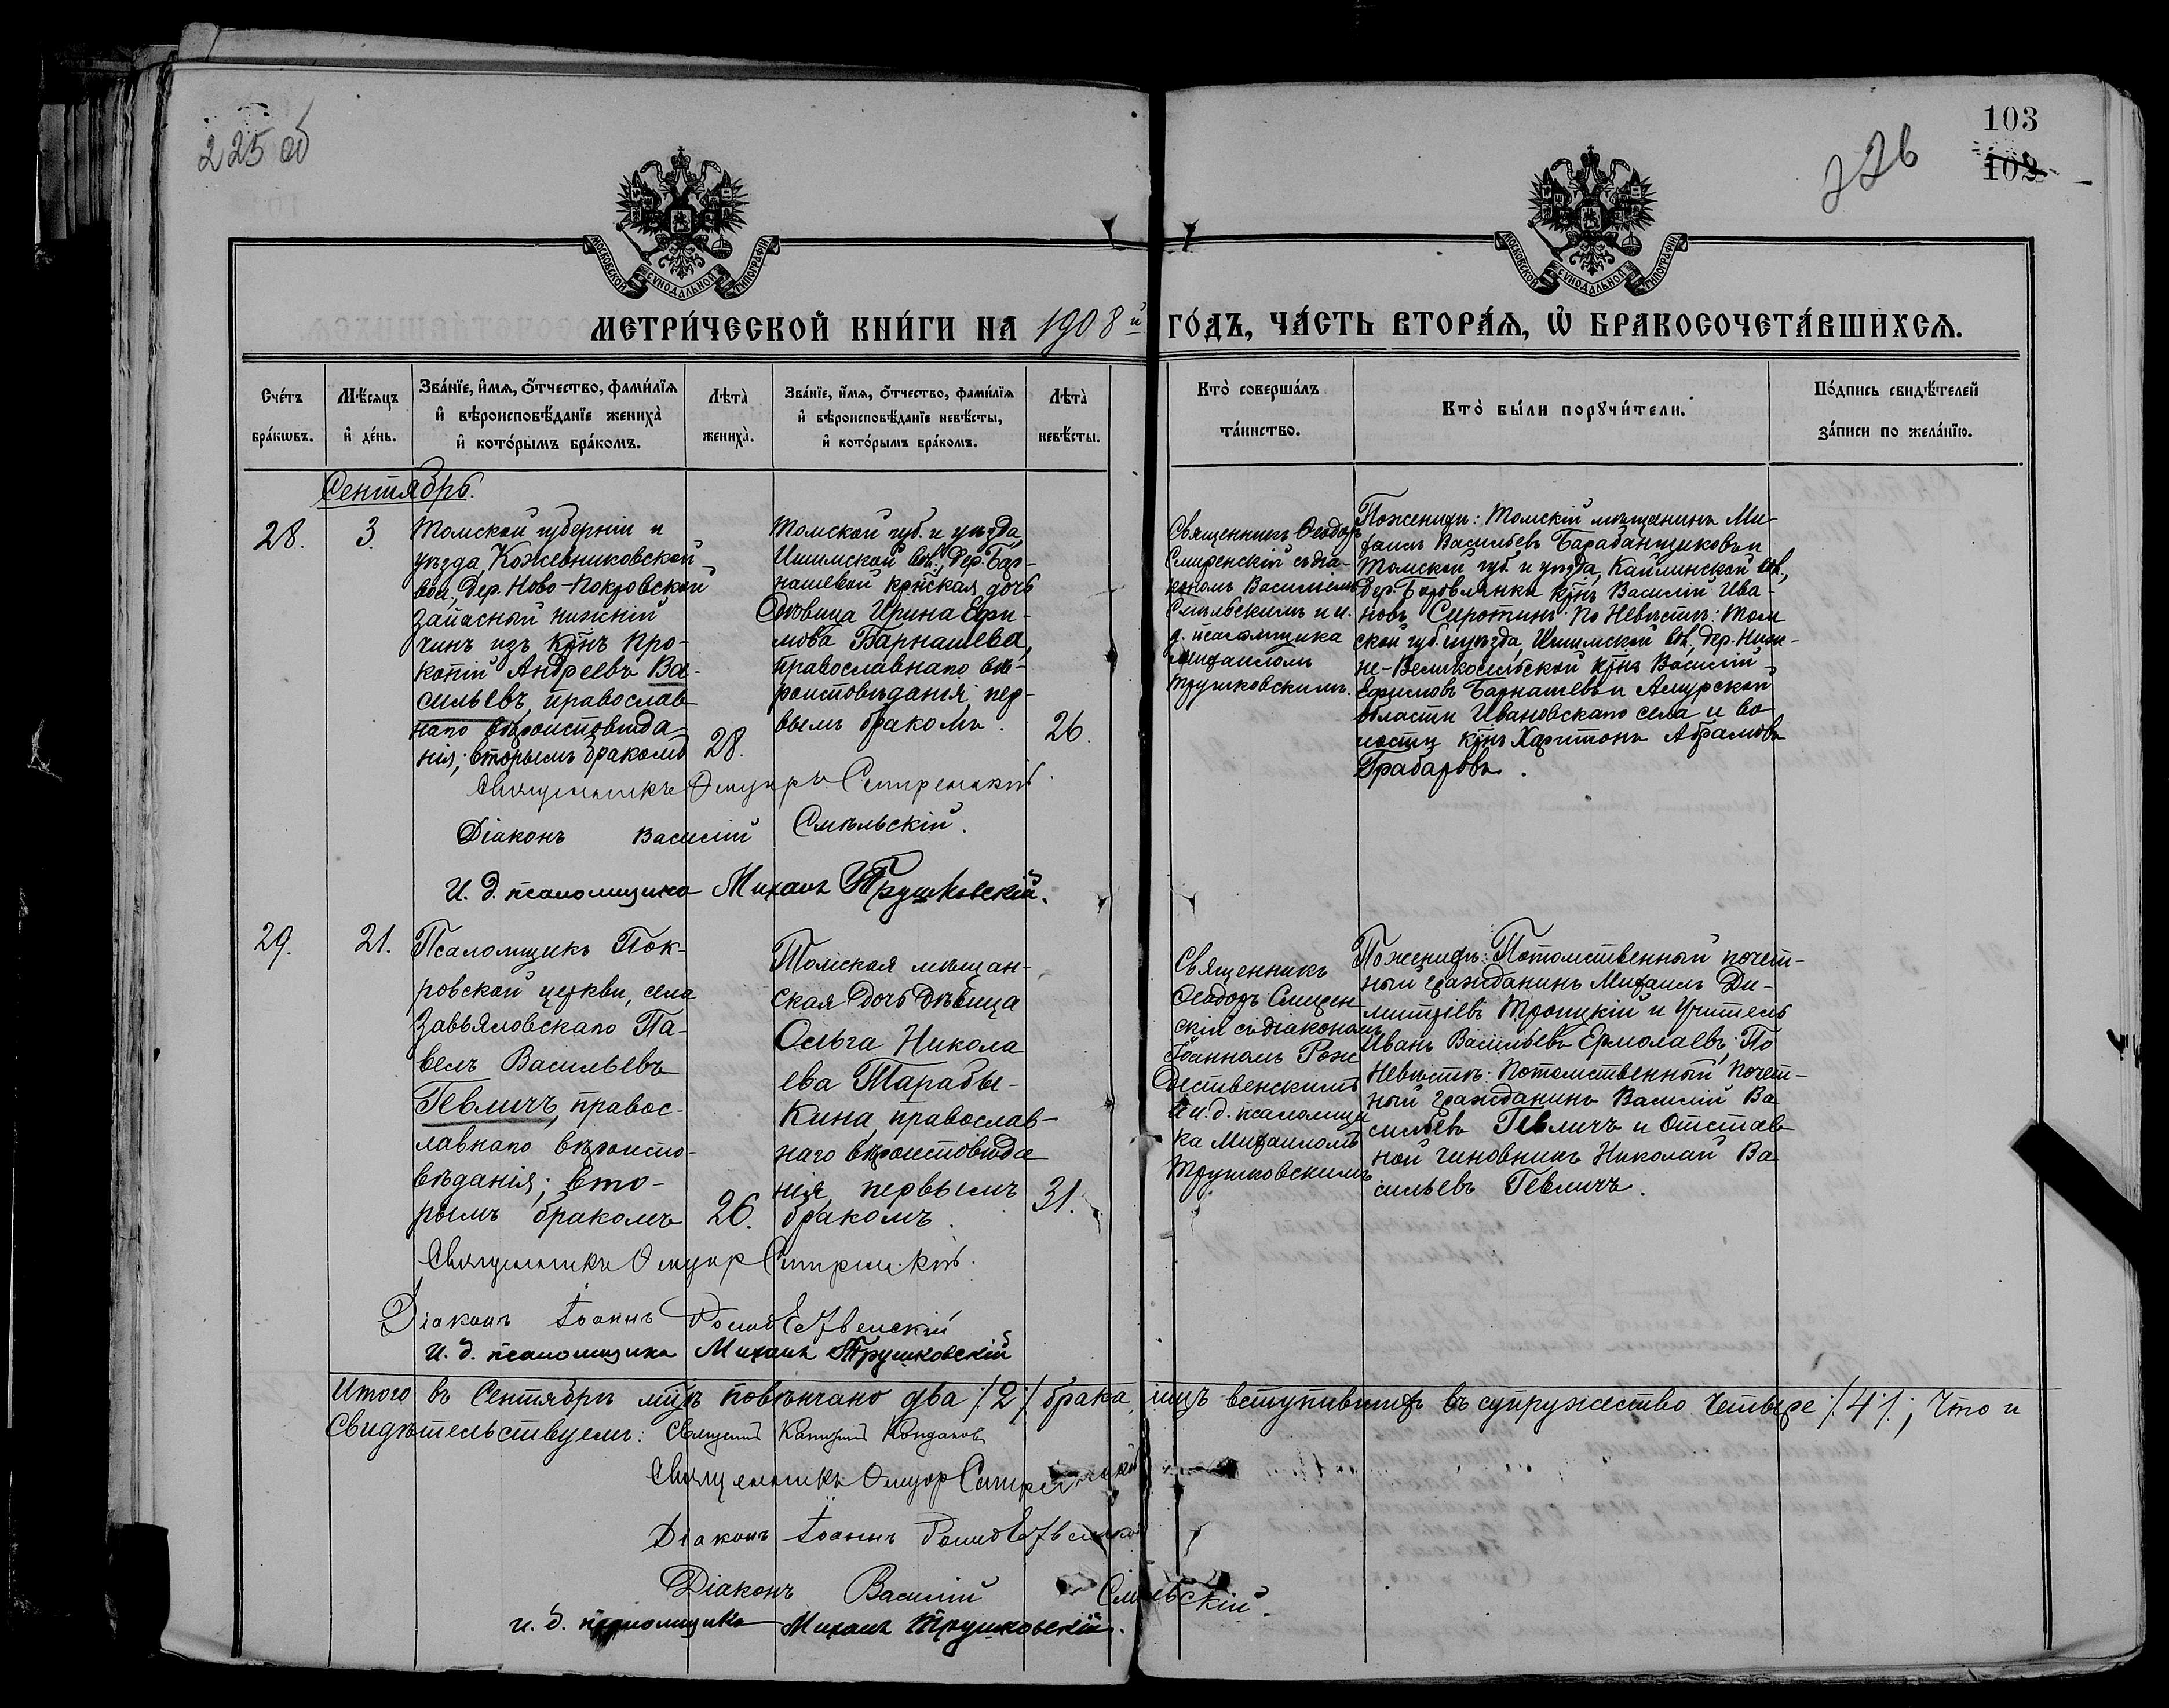 225 об
226
103
102
МОСКОВСКОЙ СѴНОДАЛЬНОЙ ТИПОГРАФІИ
МОСКОВСКОЙ СѴНОДАЛЬНОЙ ТИПОГРАФІИ
МЕТРИ́ЧЕСКОЙ КНИ́ГИ НА 1908й ГО́ДЪ, ЧА́СТЬ ВТОРА́Ѧ, Ѽ БРАКОСОЧЕТА́ВШИХСѦ.
Сче́тъ
бра́кѡвъ.
Мѣ́сѧцъ
и҆ де́нь.
Зва́нїе, и҆́мѧ, ѻ҆́тчество, фами́лїѧ
и҆ вѣроисповѣ́данїе жениха̀
и҆ кото́рымъ бра́комъ.
Лѣта̀
жениха̀.
Зва́нїе, и҆́мѧ, ѻ҆́тчество, фами́лїѧ
и҆ вѣроисповѣ́данїе невѣ́сты,
и҆ кото́рымъ бра́комъ.
Лѣта̀
невѣ́сты.
Кто̀ соверша́лъ
та́инство.
Кто̀ бы́ли порꙋчи́тели.
По́дпись свидѣ́телей
за́писи по жела́нїю.
Сентябрь.
28.
3.
Томской губерніи и
уѣзда, Кожевниковской
вол., дер. Ново-Покровской
запасный нижній
чинъ изъ кр̃нъ Про-
копій Андреевъ Ва-
сильевъ, православ
наго вѣроисповѣда-
нія; вторымъ бракомъ
28.
Томской губ. и уѣзда,
Ишимской вол., дер. Бар-
нашевой кр̃нская дочь
дѣвица Ирина Ефи-
мова Барнашева,
православнаго вѣ-
роисповѣданія; пер-
вымъ бракомъ.
26.
Священникъ Ѳеодоръ
Смиренскій съ діа-
кономъ Василіемъ
Смѣльскимъ и и.
д. псаломщика
Михаиломъ
Трушковскимъ.
По женихѣ: Томскій мѣщанинъ Ми-
хаилъ Васильевъ Барабанщиковъ и
Томской губ. и уѣзда, Кайлинской вол.,
дер. Боровлянки кр̃нъ Василій Ива-
новъ Сиротинъ. По Невѣстѣ: Том
ской губ. и уѣзда, Ишимской вол., дер. Ниж-
не-Великосельской кр̃нъ Василій
Ефимовъ Барнашевъ и Амурской
области Ивановскаго села и во
лости кр̃нъ Харитонъ Абрамовъ
Грабаровъ.
Священникъ Ѳеодоръ Смиренскій.
Діаконъ Василій Смѣльскій.
И. д. псаломщика Михаилъ Трушковскій.
29.
21.
Псаломщикъ Пок-
ровской церкви, села
Завьяловскаго Па-
велъ Васильевъ
Гевличъ, правос-
лавнаго вѣроиспо-
вѣданія; вто-
рымъ бракомъ
26.
Томская мѣщан-
ская дочь дѣвица
Ольга Никола
ева Тарабы-
кина, православ-
наго вѣроисповѣда
нія, первымъ
бракомъ.
31.
Священникъ
Ѳеодоръ Смирен
скій съ діакономъ
Іоанномъ Рож
дественскимъ
и и. д. псаломщи
ка Михаиломъ
Трушковскимъ
По женихѣ: Потомственный почет-
ный гражданинъ Михаилъ Ди-
митріевъ Троицкій и Учитель
Иванъ Васильевъ Ермолаевъ; По
Невѣстѣ: Потомственный Почет-
ный гражданинъ Василій Ва
сильевъ Гевличъ и Отстав
ной чиновникъ Николай Ва
сильевъ Гевличъ.
Священникъ Ѳеодоръ Смиренскій.
Діаконъ Іоаннъ Рождественскій
И. д. псаломщика Михаилъ Трушковскій
Итого въ Сентябрѣ мц̃ѣ повѣнчано два /2/ брака, лицъ вступавшихъ въ супружество четыре /4/; что и
Свидѣтельствуемъ: Священникъ Кондаковъ
Священникъ Ѳеодоръ Смиренскій
Діаконъ Іоаннъ Рождественскій
Діаконъ Василій Смѣльскій.
и. д. псаломщика Михаилъ Трушковскій.